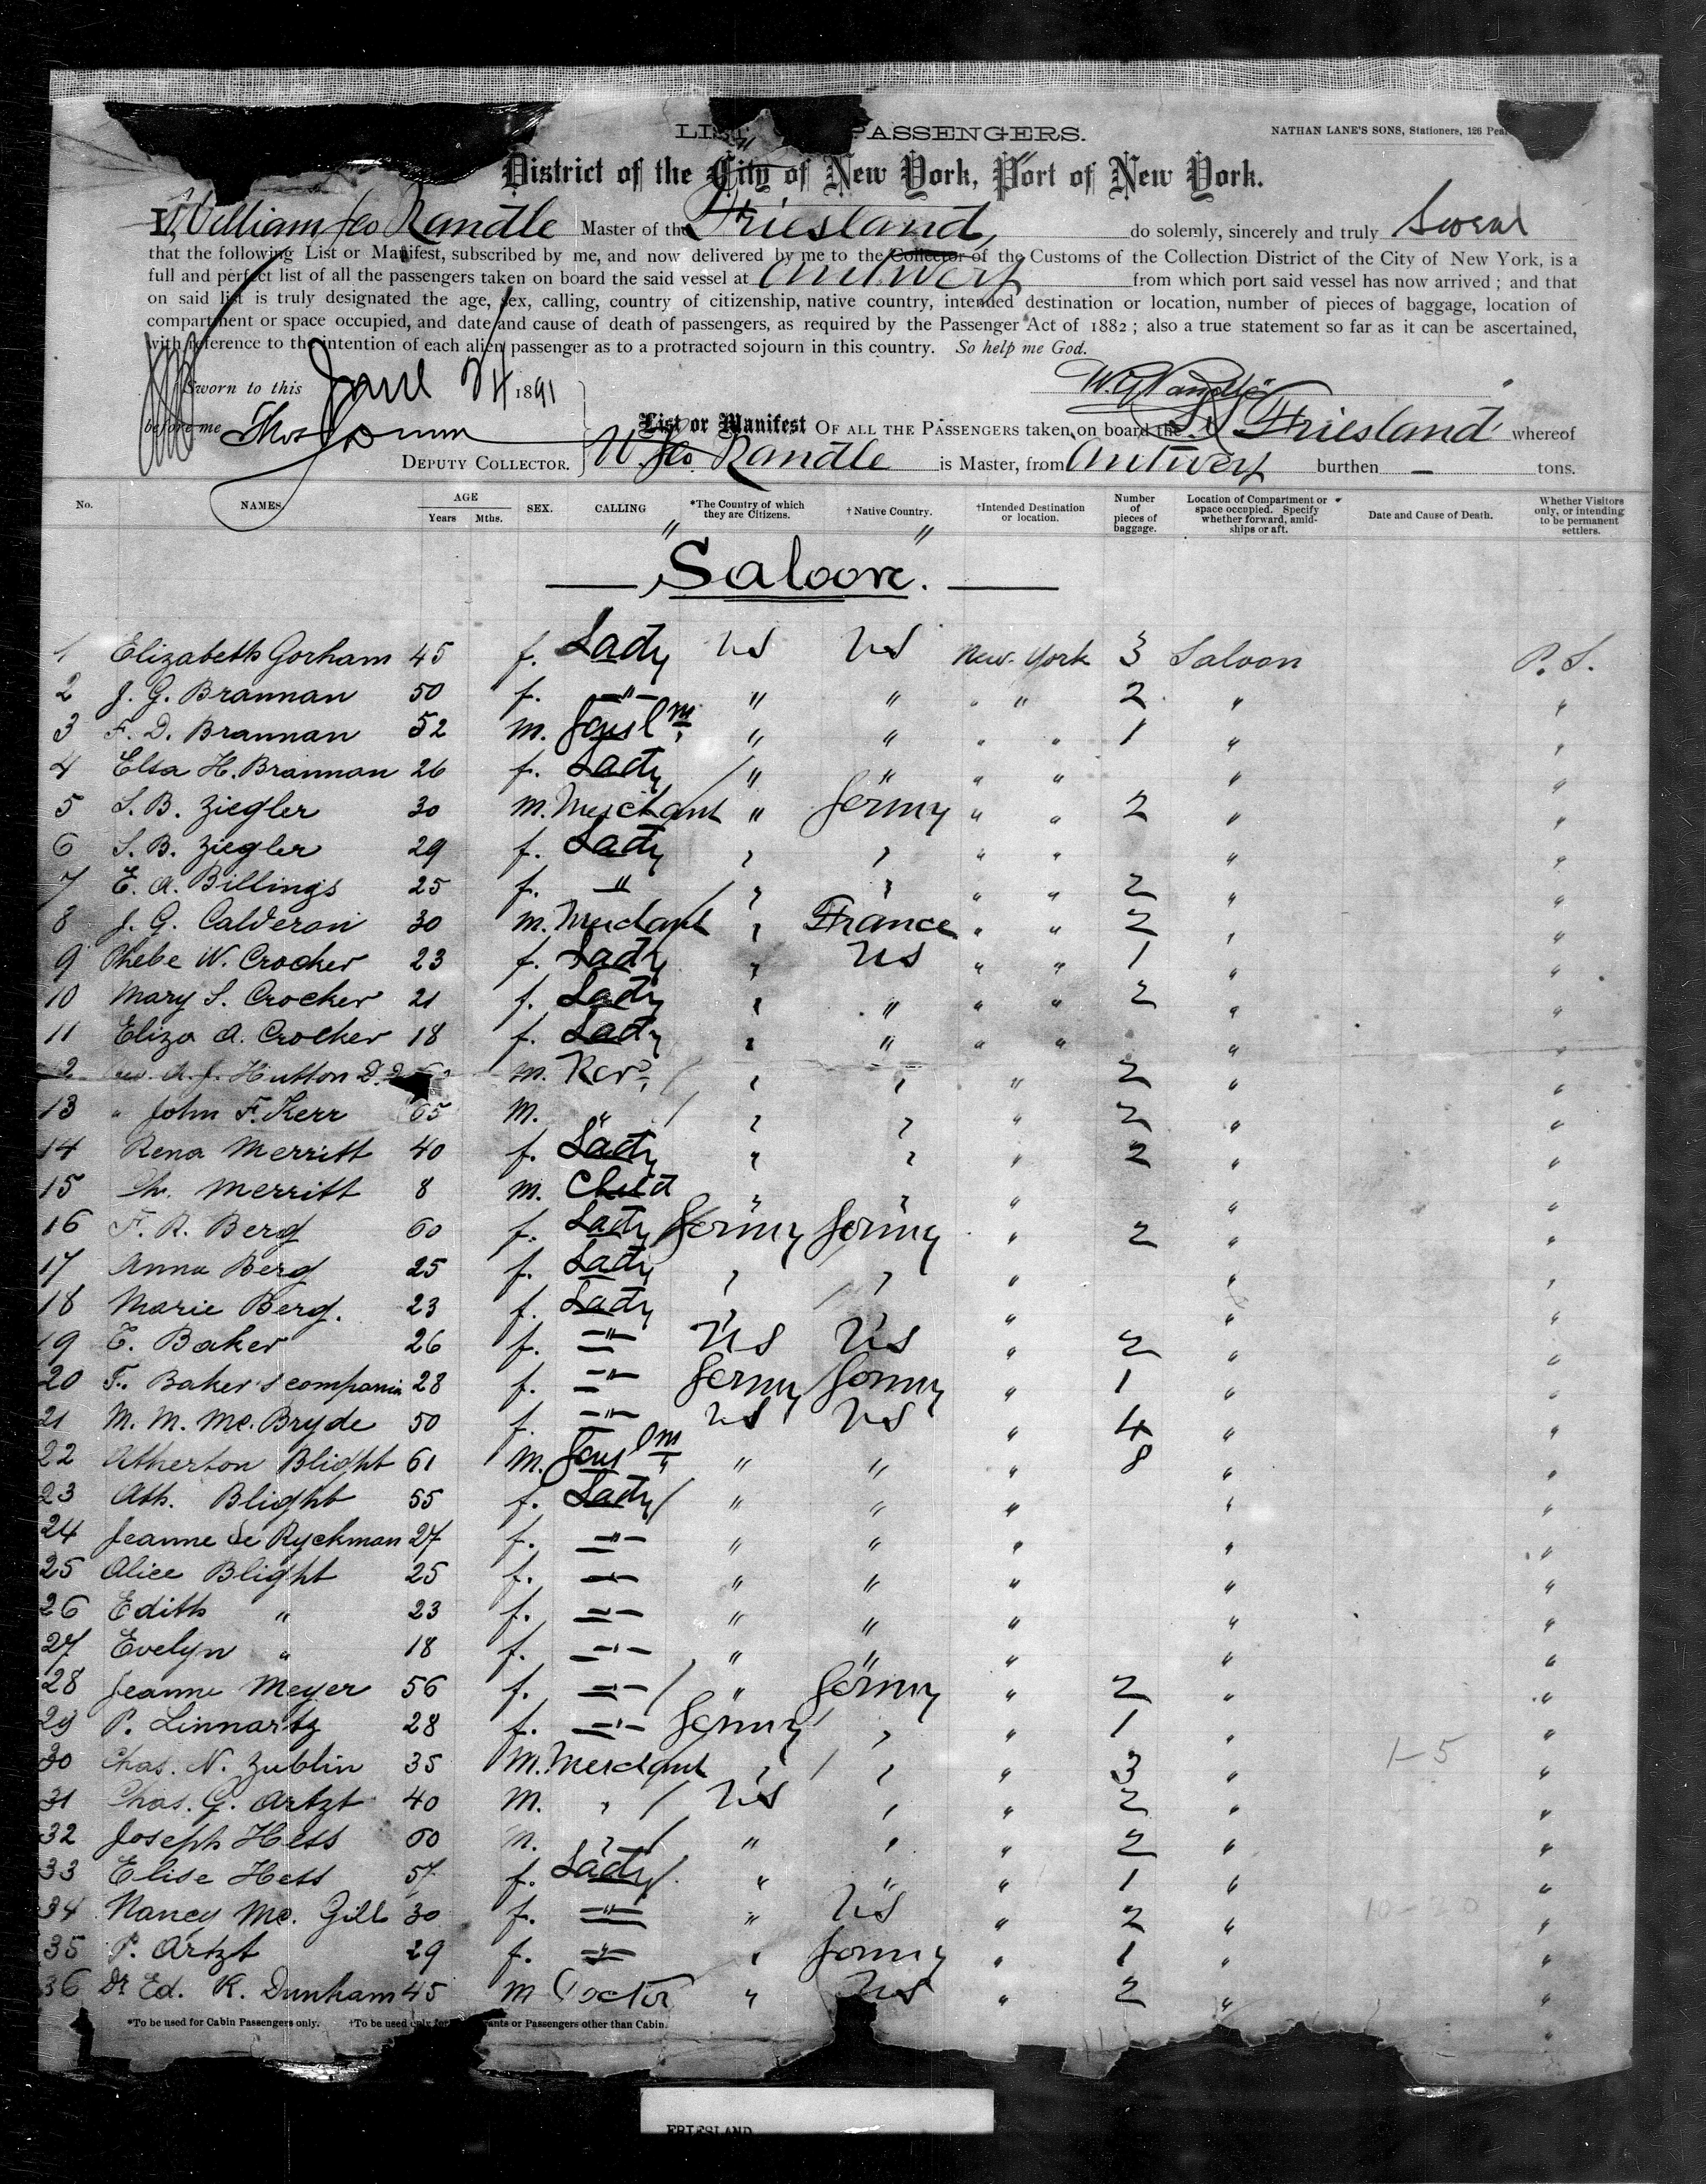 LIST PASSENGERS.
NATHAN LANE'S SONS, Stationers, 126
District of the City of New York, Port of New York.
I, William Geo Randle Master of the Friesland, do solemly, sincerely and truly Swear
that the following List or Manifest, subscribed by me, and now delivered by me to the Collector of the Customs of the Collection District of the City of New York, is a
full and perfect list of all the passengers taken on board the said vessel at Antwerp from which port said vessel has now arrived ; and that
on said list is truly designated the age, sex, calling, country of citizenship, native country, intended destination or location, number of pieces of baggage, location of
compartment or space occupied, and date and cause of death of passengers, as required by the Passenger Act of 1882 ; also a true statement so far as it can be ascertained,
with reference to the intention of each alien passenger as to a protracted sojourn in this country. So help me God.
Sworn to this 24 1891
W. G. Randle
before me Thos
List or Manifest OF ALL THE PASSENGERS taken on board the S.S. Friesland whereof
DEPUTY COLLECTOR. W. Geo. Randle is Master, from Antwerp burthen — tons.
No. NAMES. AGE Years Mths. SEX. CALLING *The Country of which they are Citizens. †Native Country. †Intended Destination or location. Number of pieces of baggage. Location of Compartment or space occupied. Specify whether forward, amidships or aft. Date and Cause of Death. Whether Visitors only, or intending to be permanent settlers.
"Saloon."
1 Elizabeth Gorham 45 f. Lady US US New-York 3 Saloon P. S.
2 J. G. Brannan 50 f. " " " " " 2 " "
3 F. D. Brannan 52 m. " " " " 1 " "
4 Elsa H. Brannan 26 f. Lady " " " " " "
5 S. B. Ziegler 30 m. Merchant " Germy " " 2 " "
6 S. B. Ziegler 29 f. Lady " " " " " "
7 E. A. Billings 25 f. " " " " " 2 " "
8 J. G. Calderon 30 m. Merchant " France " " 2 " "
9 Phebe W. Crocker 23 f. Lady " US " " 1 " "
10 Mary S. Crocker 21 f. Lady " " " " 2 " "
11 Eliza A. Crocker 18 f. Lady " " " " " "
2 A. J. Hutton D.D. m. Revd " " " 2 " "
13 " John F. Kerr 65 m. " " " " 2 " "
14 Rena Merritt 40 f. Lady " " " 2 " "
15 Ch. Merritt 8 m. Child " " " " "
16 F. R. Berg 60 f. Lady Germny Germny " 2 " "
17 Anna Berg 25 f. Lady " " " " "
18 Marie Berg. 23 f. Lady " " " " "
19 E. Baker 26 f. " US US " 2 " "
20 F. Baker's 28 f. " Germny Germny " 1 " "
21 M. M. Mc. Bryde 50 f. " US US " 4 " "
22 Atherton Blight 61 m. " " " 8 " "
23 Ath. Blight 55 f. Lady " " " " "
24 Jeanne de Ryckman 27 f. " " " " " "
25 Alice Blight 25 f. " " " " " "
26 Edith " 23 f. " " " " " "
27 Evelyn " 18 f. " " " " " "
28 Jeanne Meyer 56 f. " " Germny " 2 " "
29 P. Linnartz 28 f. " Germny " " 1 " "
30 Chas. N. Zublin 35 m. Merchant " " " 3 " 1-5 "
31 Chas. G. Artzt 40 m. " US " " 2 " "
32 Joseph Hess 60 m. " " " " 2 " "
33 Elise Hess 57 f. Lady " " " 1 " "
34 Nancy Mc. Gill 30 f. " " US " 2 " 10-20 "
35 P. Artzt 29 f. " " Germny " 1 " "
36 Dr Ed. K. Dunham 45 m Doctor " US " 2 " "
*To be used for Cabin Passengers only. †To be used only for or Passengers other than Cabin.
FRIESLAND